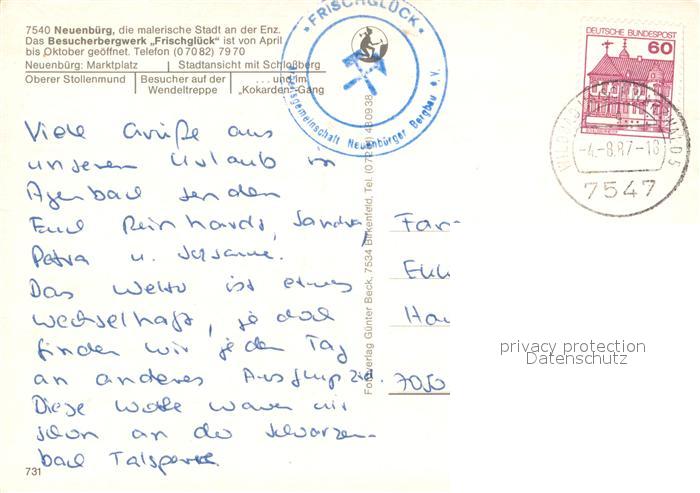 7540 Neuenbürg, die malerische Stadt an der Enz.
Das Besucherbergwerk „Frischglück" ist von April
bis Oktober geöffnet. Telefon (0 70 82) 79 70
Neuenbürg: Marktplatz Stadtansicht mit Schloßberg
Oberer Stollenmund Besucher auf der Wendeltreppe ... und im „Kokarden"-Gang
· FRISCHGLÜCK ·
Arbeitsgemeinschaft Neuenbürger Bergbau e.V.
DEUTSCHE BUNDESPOST
60
-4.-8.87-18
7547
Viele Grüße aus
unserem Urlaub in
senden
Eure Reinhards, Sandra,
Petra u. Susanne.
Das Wetter ist etwas
wechselhaft, jedoch
finden wir jeden Tag
an anderes Ausflugziel.
Diese Woche waren wir
schon an der Schwarzen-
bach Talsperre.
Fam
7050
Fotoverlag Günter Beck, 7534 Birkenfeld, Tel. 480938
privacy protection
Datenschutz
731